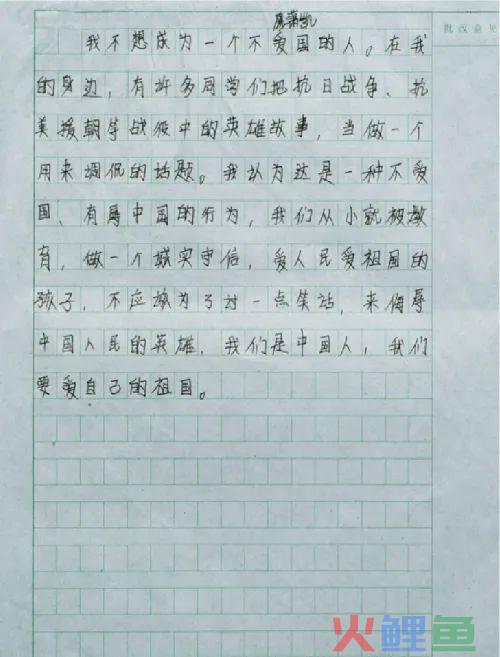 批改意见
我不想成为一个不爱国的人。在我
的身边，有许多同学们把抗日战争、抗
美援朝等战役中的英雄故事，当做一个
用来调侃的话题。我认为这是一种不爱
国、有辱中国的行为，我们从小就被教
育，做一个诚实守信，爱人民爱祖国的
孩子，不应该为了讨一点笑话，来侮辱
中国人民的英雄，我们是中国人，我们
要爱自己的祖国。
火鲤鱼